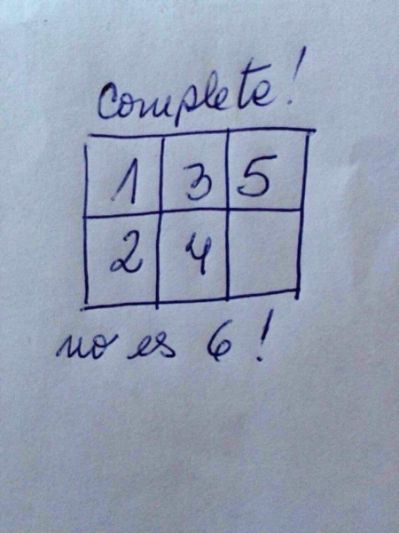 Complete!
1 3 5
2 4
no es 6!